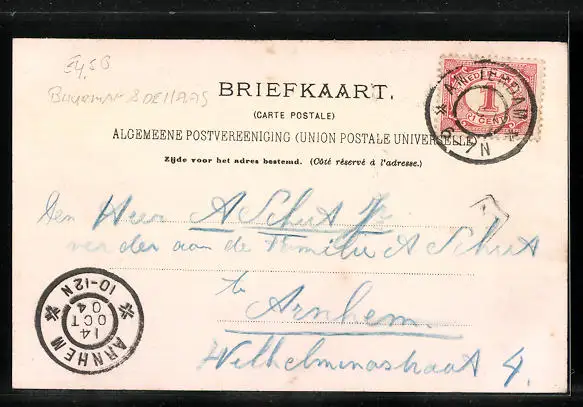 BRIEFKAART.
(CARTE POSTALE)
ALGEMEENE POSTVEREENIGING (UNION POSTALE UNIVERSELLE)
Zijde voor het adres bestemd. (Côté réservé à l'adresse.)
NEDERLAND
1
CENT
5-7N
Den Heer A Schut Jr
verder aan de Familie A Schut
te
Arnhem.
Wilhelminastraat 4.
ARNHEM
14
OCT
04
10-12N